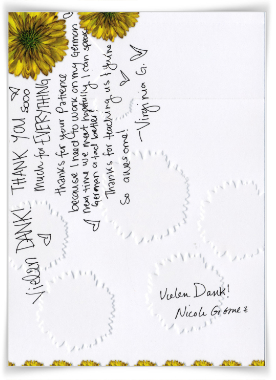 Vielen DANK! THANK YOU sooo
much for EVERYTHING
thanks for your Patience
because I need to work on my German
next time we meet hopefully I can speak
German a tad better!
Thanks for teaching us & you're
so awesome!
-Virginia G.
Vielen Dank!
Nicole